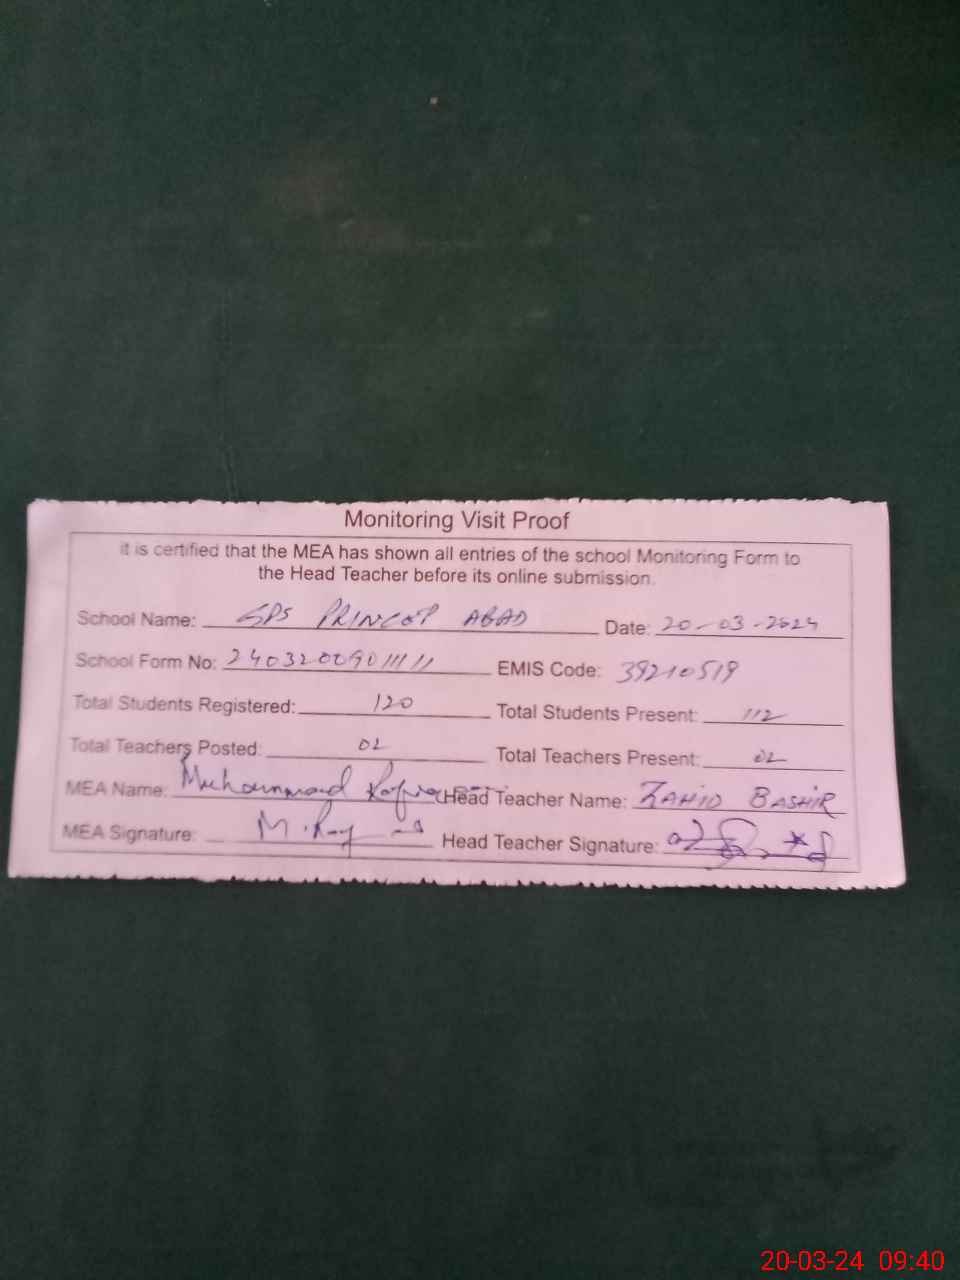 Monitoring Visit Proof
it is certified that the MEA has shown all entries of the school Monitoring Form to
the Head Teacher before its online submission.
School Name: GPS PRINCOP ABAD Date: 20-03-2024
School Form No: 2403200901111 EMIS Code: 39210519
Total Students Registered: 120 Total Students Present: 112
Total Teachers Posted: 02 Total Teachers Present: 02
MEA Name: Muhammad Head Teacher Name: ZAHID BASHIR
MEA Signature: Head Teacher Signature:
20-03-24 09:40